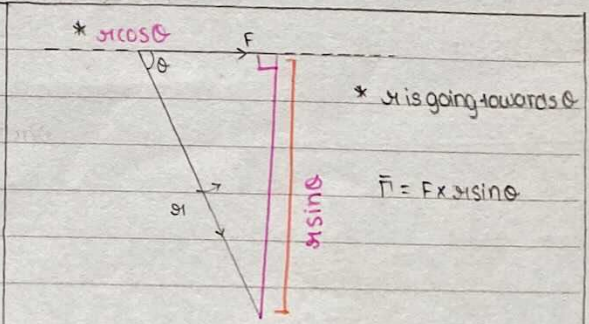 * rcosθ
F
θ
* r is going towards θ
r
rsinθ
Γ̄ = F × rsinθ